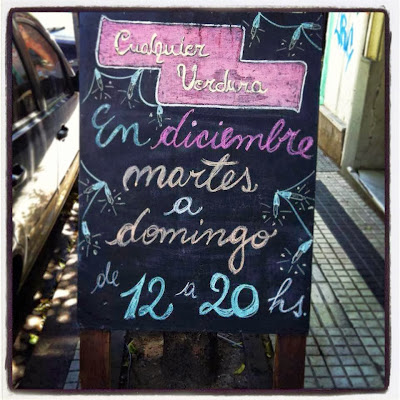 Cualquier
Verdura
En diciembre
martes
a
domingo
de 12 a 20 hs.